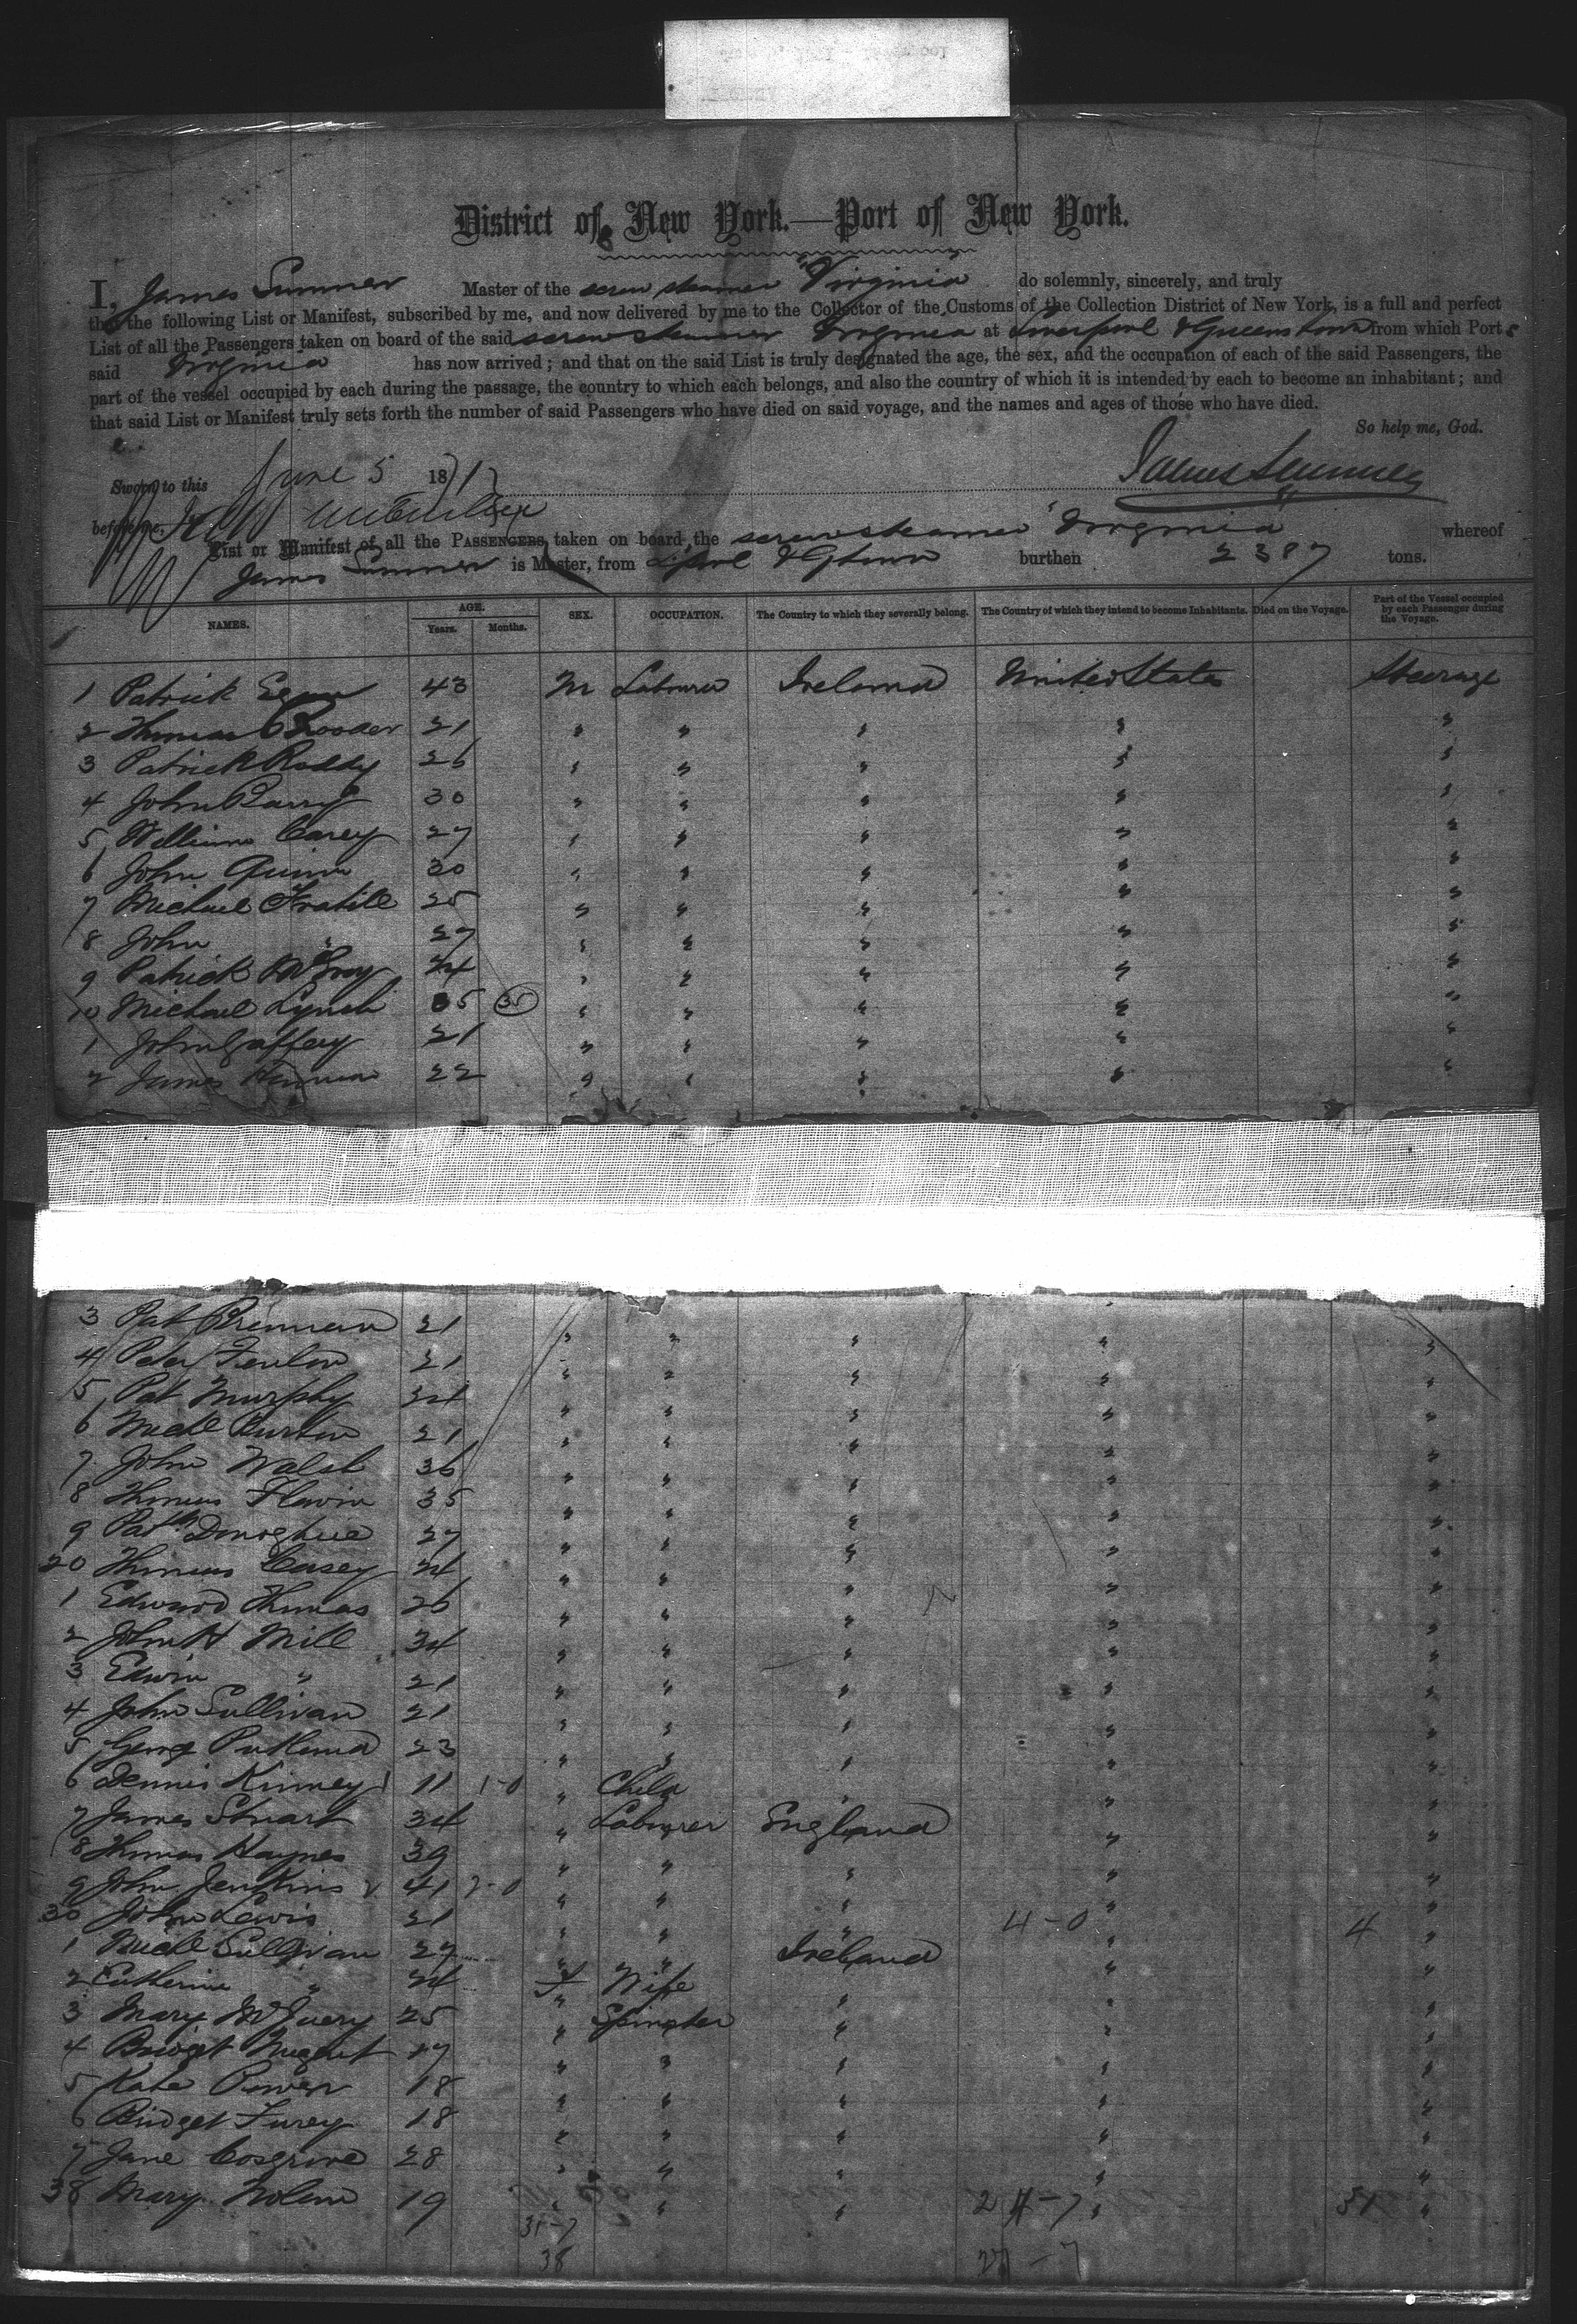 District of New York.—Port of New York.
I, James Summer Master of the screw steamer "Virginia" do solemnly, sincerely, and truly
that the following List or Manifest, subscribed by me, and now delivered by me to the Collector of the Customs of the Collection District of New York, is a full and perfect
List of all the Passengers taken on board of the said screw steamer Virginia at Liverpool & Queenstown from which Ports
said Virginia has now arrived; and that on the said List is truly designated the age, the sex, and the occupation of each of the said Passengers, the
part of the vessel occupied by each during the passage, the country to which each belongs, and also the country of which it is intended by each to become an inhabitant; and
that said List or Manifest truly sets forth the number of said Passengers who have died on said voyage, and the names and ages of those who have died.
So help me, God.
Sworn to this June 5 1871 James Summer
before me
List or Manifest of all the PASSENGERS taken on board the screw steamer "Virginia" whereof
James Summer is Master, from L'pool & Qtown burthen 2387 tons.
NAMES. AGE. Years. Months. SEX. OCCUPATION. The Country to which they severally belong. The Country of which they intend to become Inhabitants. Died on the Voyage. Part of the Vessel occupied by each Passenger during the Voyage.
1 Patrick Egan 43 M Labourer Ireland United States Steerage
2 Thomas 21 " " " " "
3 Patrick Roddy 26 " " " " "
4 John Barry 30 " " " " "
5 William Carey 27 " " " " "
6 John Quinn 30 " " " " "
7 Michael 25 " " " " "
8 John " 27 " " " " "
9 Patrick 24 " " " " "
10 Michael Lynch 35 (35) " " " " "
1 John Gaffery 21 " " " " "
2 James 22 " " " " "
3 Pat Brennan 21 " " " " "
4 Peter Fenlon 21 " " " " "
5 Pat Murphy 24 " " " " "
6 Michl Burton 21 " " " " "
7 John Walsh 36 " " " " "
8 Thomas Flavin 35 " " " " "
9 Patk Donoghue 27 " " " " "
20 Thomas Casey 24 " " " " "
1 Edward Thomas 26 " " " " "
2 John H Mill 34 " " " " "
3 Edwin " 21 " " " " "
4 John Sullivan 21 " " " " "
5 George 23 " " " " "
6 Dennis Kinney 11 1-0 " Child " " "
7 James Stuart 34 " Labourer England " "
8 Thomas Haynes 39 " " " " "
9 John Jenkins 41 2-0 " " " " "
30 John Lewis 21 " " " 4-0 " 4 "
1 Michl Sullivan 27 " " Ireland " "
2 Catherine " 24 F Wife " " "
3 Mary 25 " Spinster " " "
4 Bridget Nugent 17 " " " " "
5 Kate Power 18 " " " " "
6 Bridget Furey 18 " " " " "
7 Jane Cosgrove 28 " " " " "
38 Mary Nolan 19 " " " 24-7 " 31 "
31-7
38 27-7